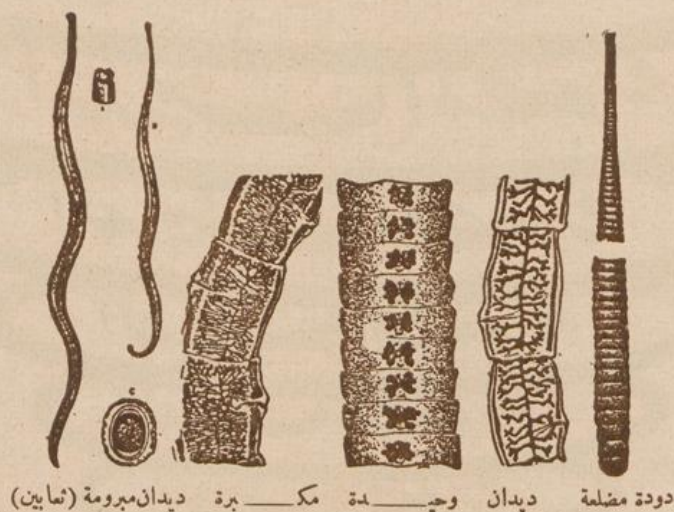 دودة مضلعة ديدان وحيـــدة مكـــبرة ديدان مبرومة (ثعابين)